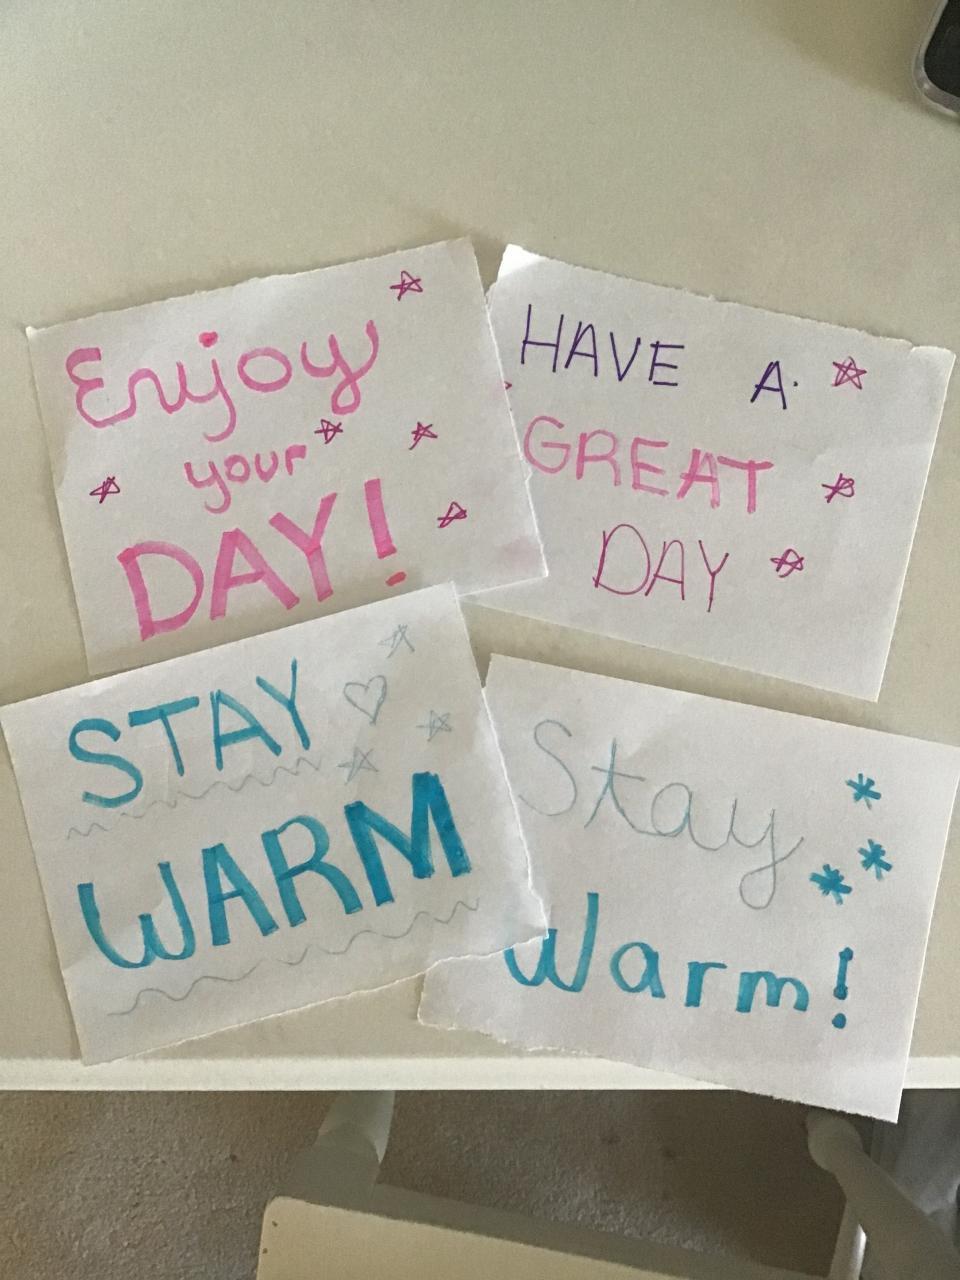 Enjoy
your
DAY!
HAVE A.
GREAT
DAY
STAY
WARM
Stay
Warm!